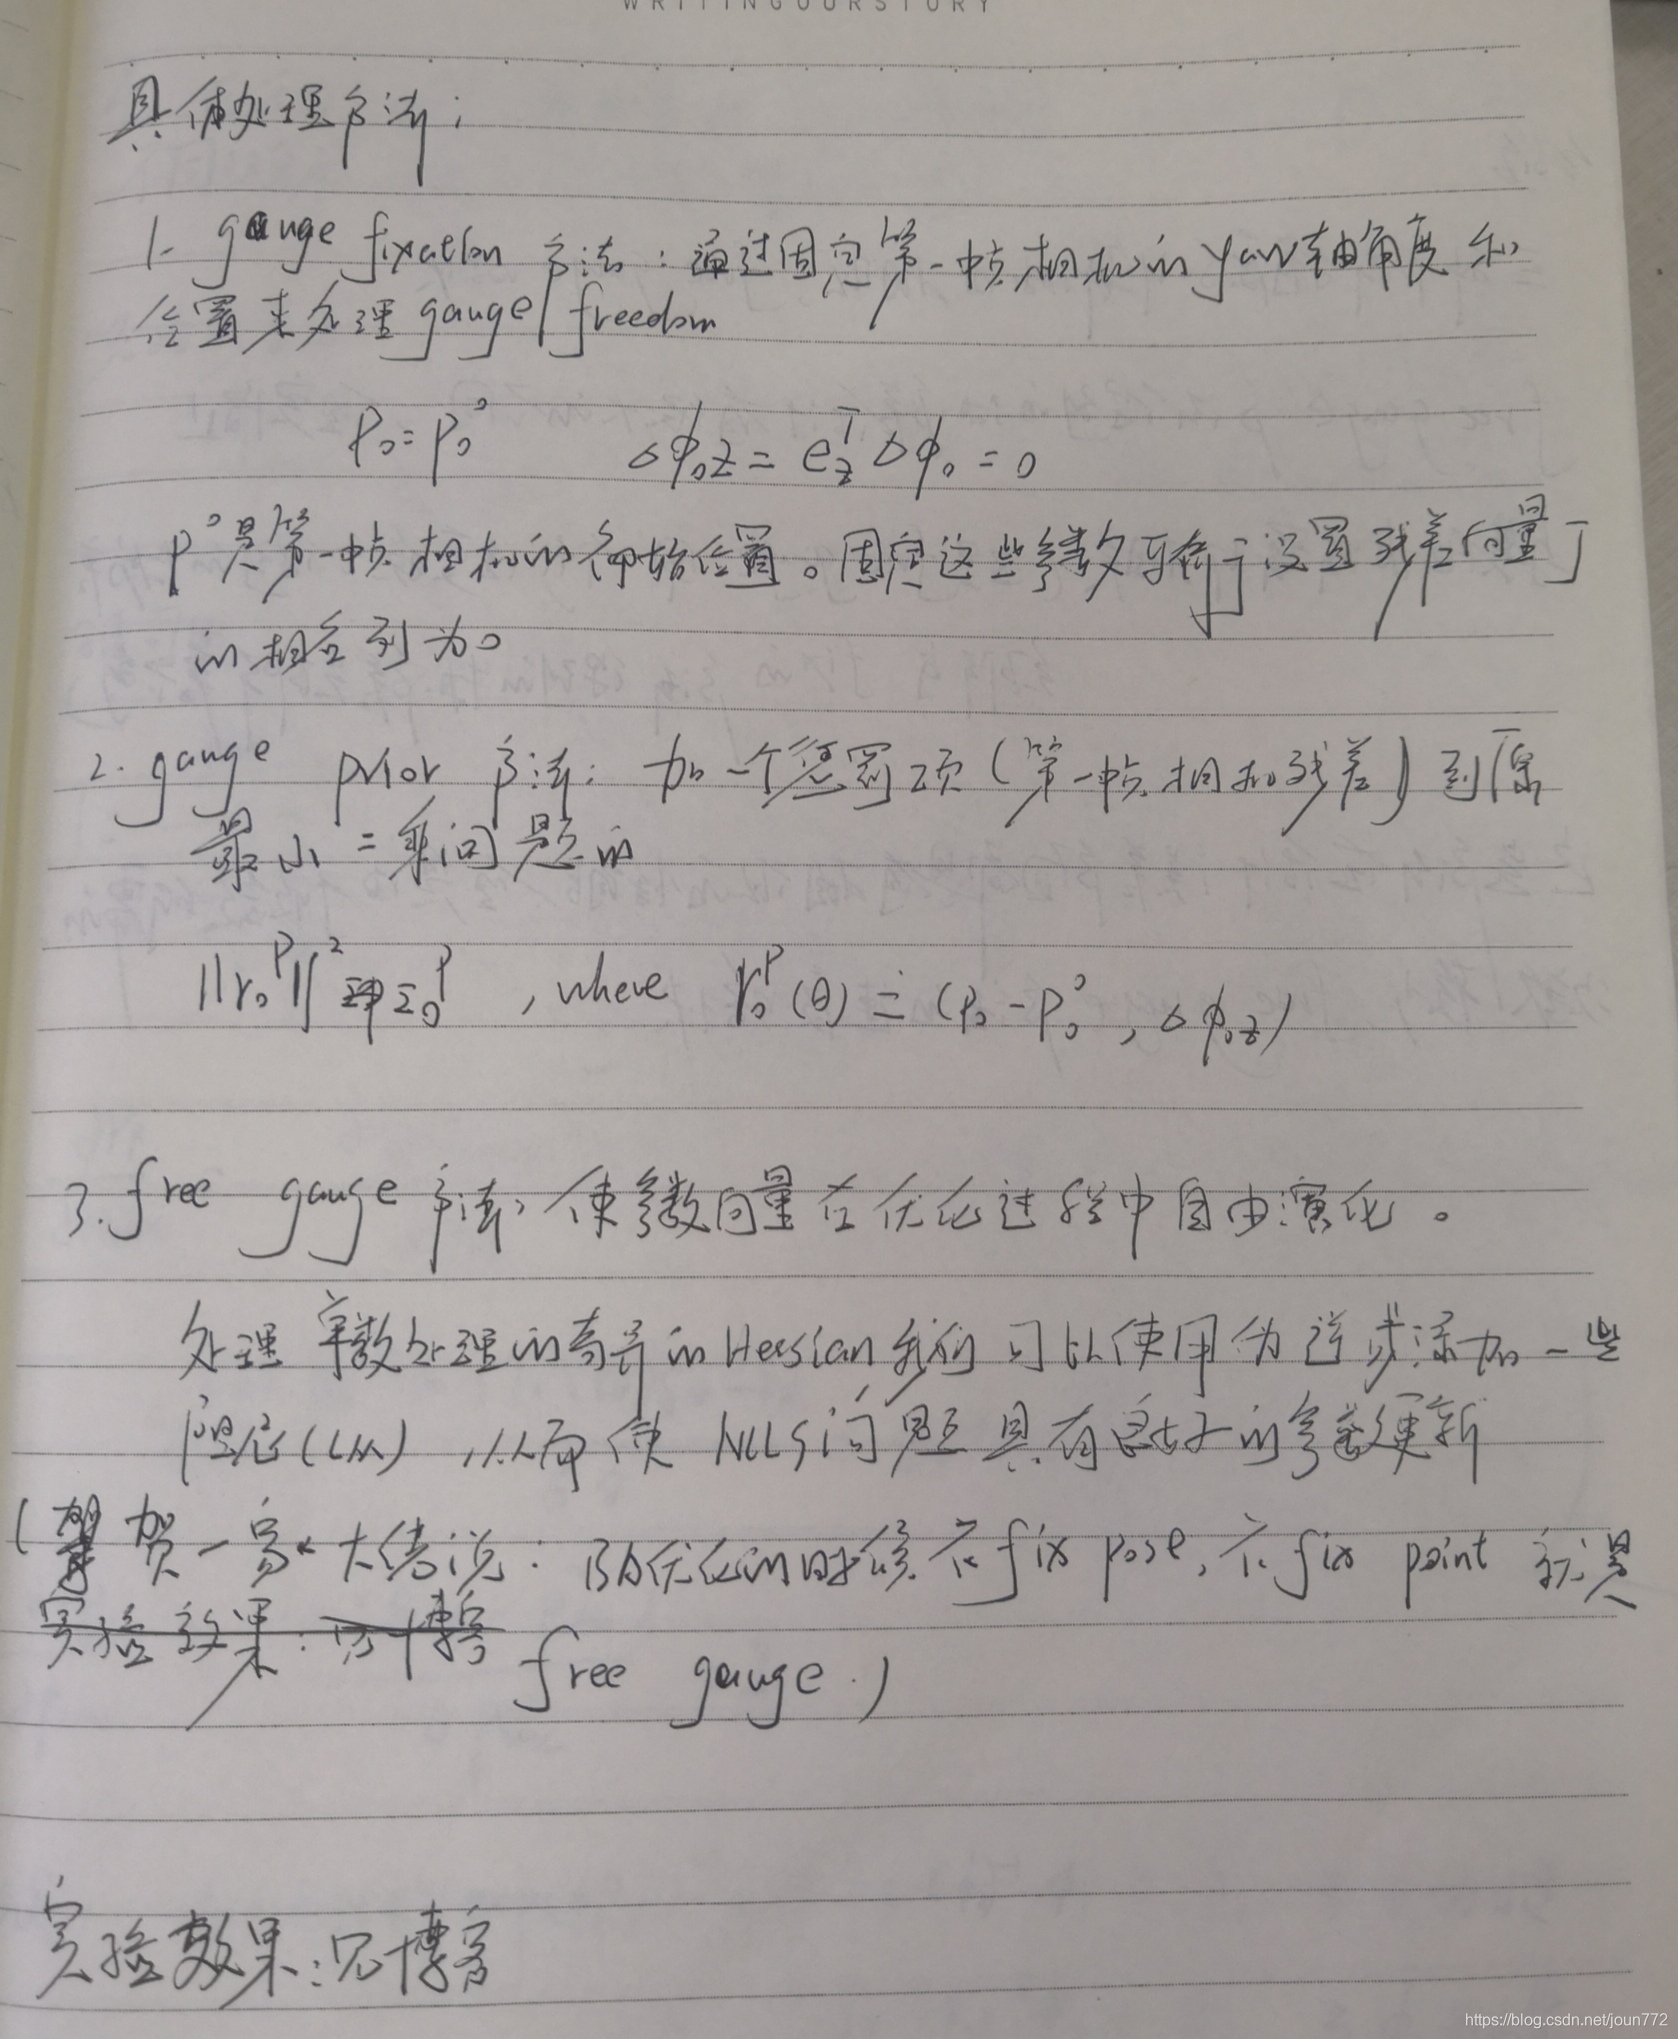 WRITINGOURSTORY
具体处理方法:
1. gauge fixation 方法:通过固定第一帧相机的yaw轴角度和
位置来处理gauge freedom
P₀=P₀⁰ Δϕ₀z = e_z^T Δϕ₀ = 0
P⁰是第一帧相机的初始位置。固定这些参数等价于设置残差向量J
的相应列为0
2. gauge prior 方法:加一个惩罚项(第一帧相机残差)到原
最小二乘问题的
||r₀^P||² Σ₀^P , where r₀^P(θ) = (P₀-P₀⁰, Δϕ₀z)
3. free gauge 方法:使参数向量在优化过程中自由演化。
处理 处理的奇异的Hessian我们可以使用伪逆或添加一些
阻尼(LM),从而使NLLS问题具有良好的参数更新
( 贺一家大佬说: 优化的时候不fix pose,不fix point 就是
实验效果:见博客
free gauge.)
实验效果:见博客
https://blog.csdn.net/joun772